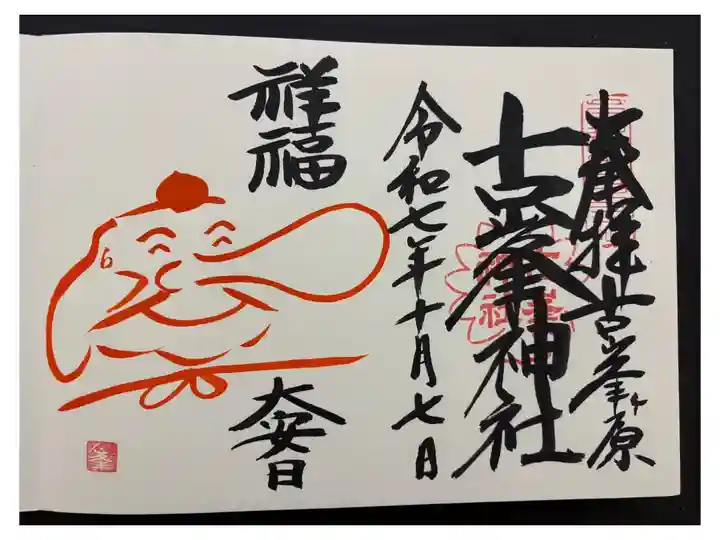 奉拝 古峯ヶ原
古峯神社
令和七年十月七日
祥福
大安日